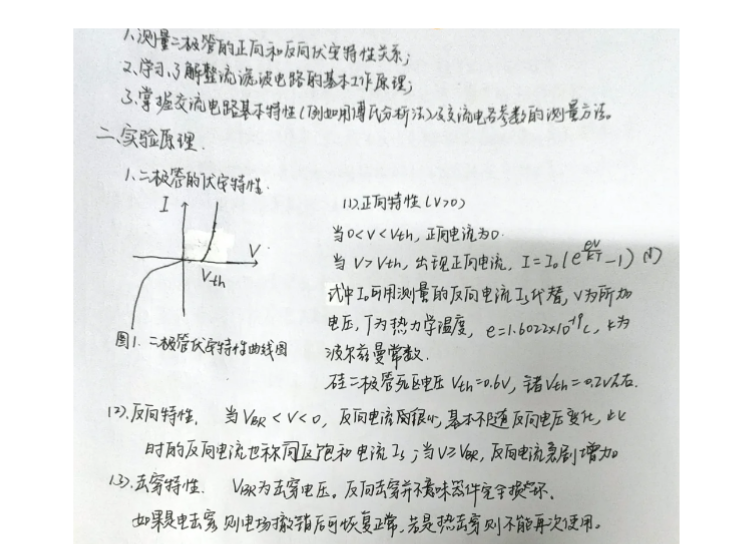 1、测量二极管的正向和反向伏安特性关系;
2、学习、了解整流滤波电路的基本工作原理;
3、掌握交流电路基本特性(例如用傅氏分析法)及交流电各参数的测量方法。
二、实验原理.
1、二极管的伏安特性.
I
V
Vth
图1. 二极管伏安特性曲线图
(1).正向特性(V>0)
当0<V<Vth, 正向电流为0.
当V>Vth, 出现正向电流, I=I₀(e^{eV/kT}-1) (1)
式中I₀可用测量的反向电流Is代替, V为所加
电压, T为热力学温度, e=1.6022×10⁻¹⁹C, k为
波尔兹曼常数.
硅二极管死区电压Vth=0.6V, 锗Vth=0.2V左右.
(2).反向特性. 当VBR<V<0, 反向电流很小, 基本不随反向电压变化, 此
时的反向电流也称反饱和电流Is; 当V≥VBR, 反向电流急剧增加
(3).击穿特性. VBR为击穿电压。反向击穿并不意味器件完全损坏.
如果是电击穿则电场撤销后可恢复正常, 若是热击穿则不能再次使用。